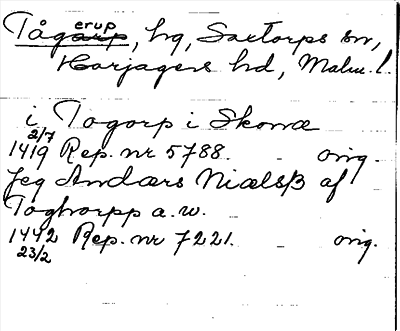 Tågarp erup, hg, Saxtorps sn,
Harjagers hd, Malm. l.
i Togorp i Skonæ
2/7
1419 Rep. nr 5788. orig.
Jeg Andærs Niælsß af
Toghorpp a. w.
1442 Rep. nr 7221. orig.
23/2